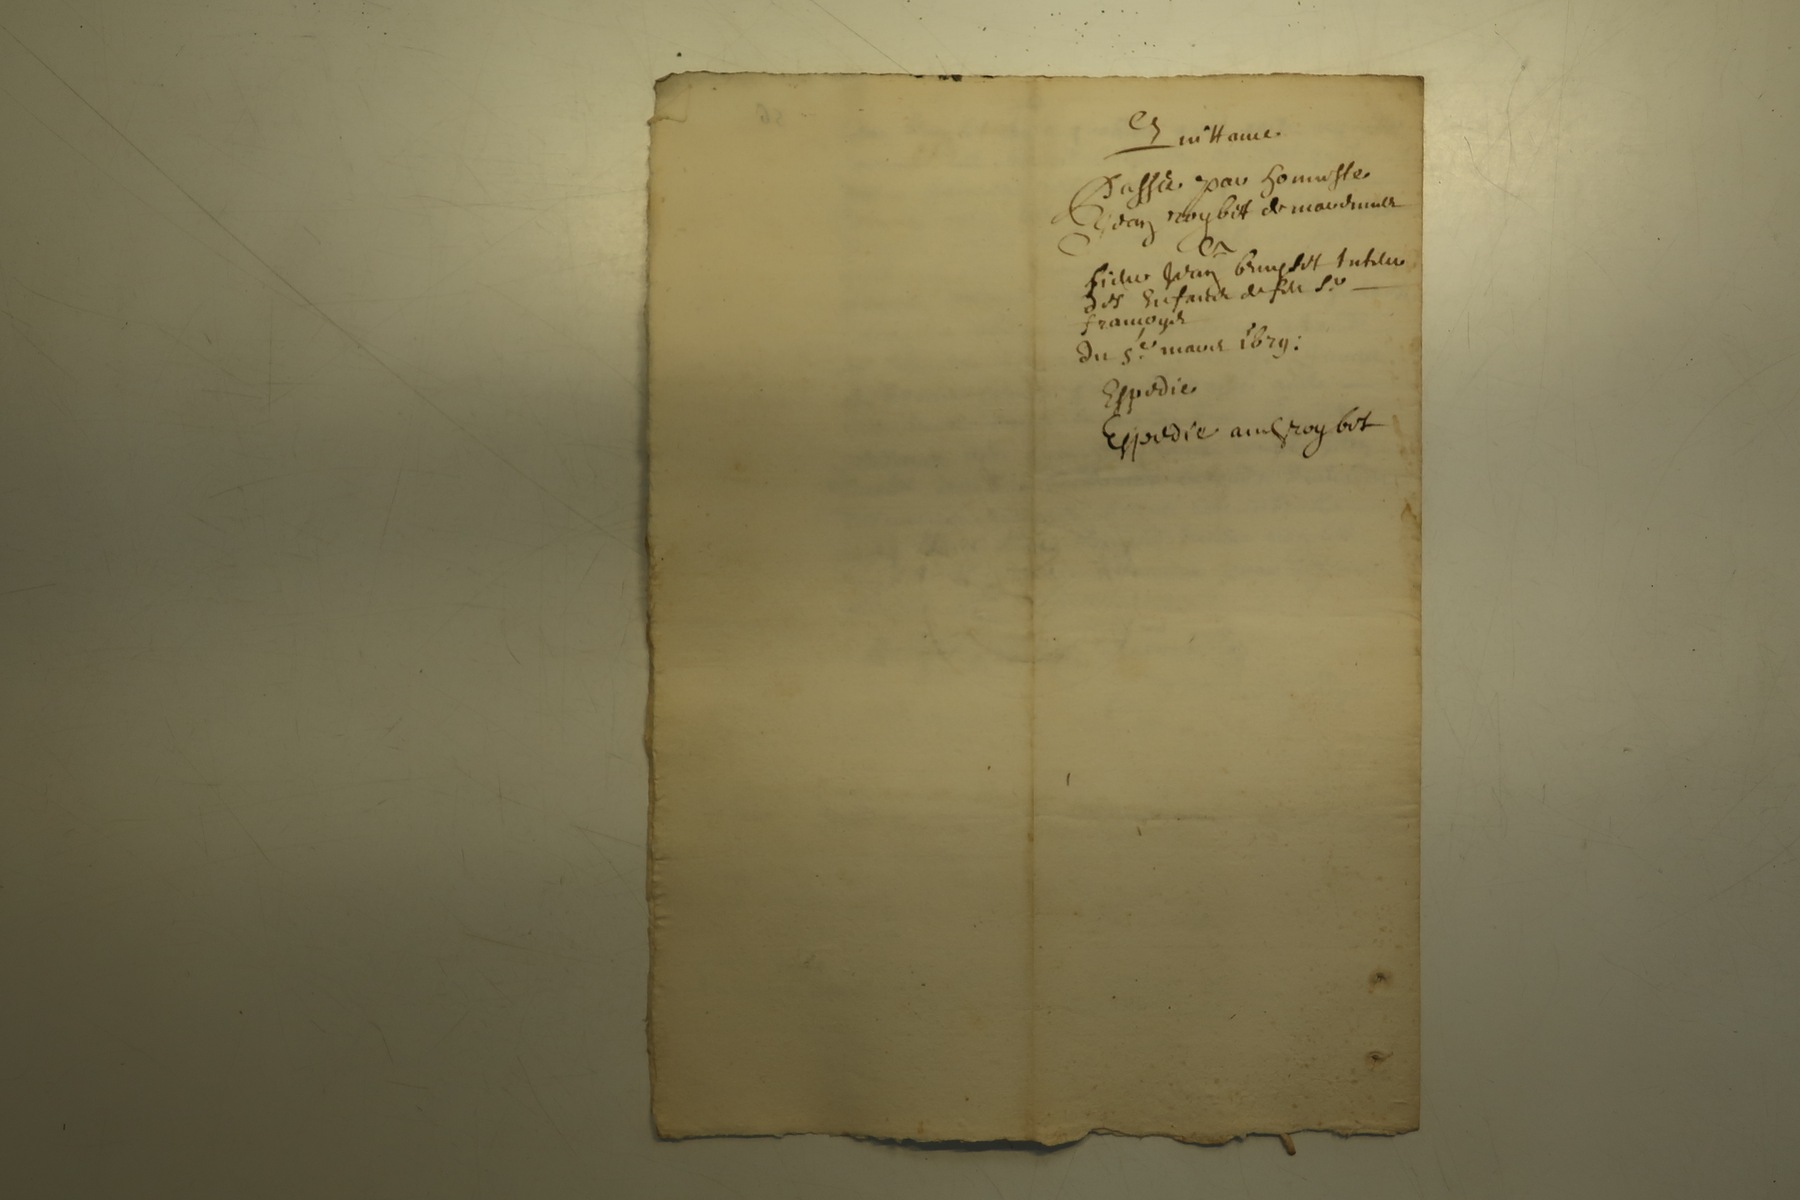 Quittance
Passée par honneste
Jean roybet de
En
Jean tuteur
des Enfants de feu Sr
françoys
Du 5e mars 1679:
Expedie
Expedie aud roybet